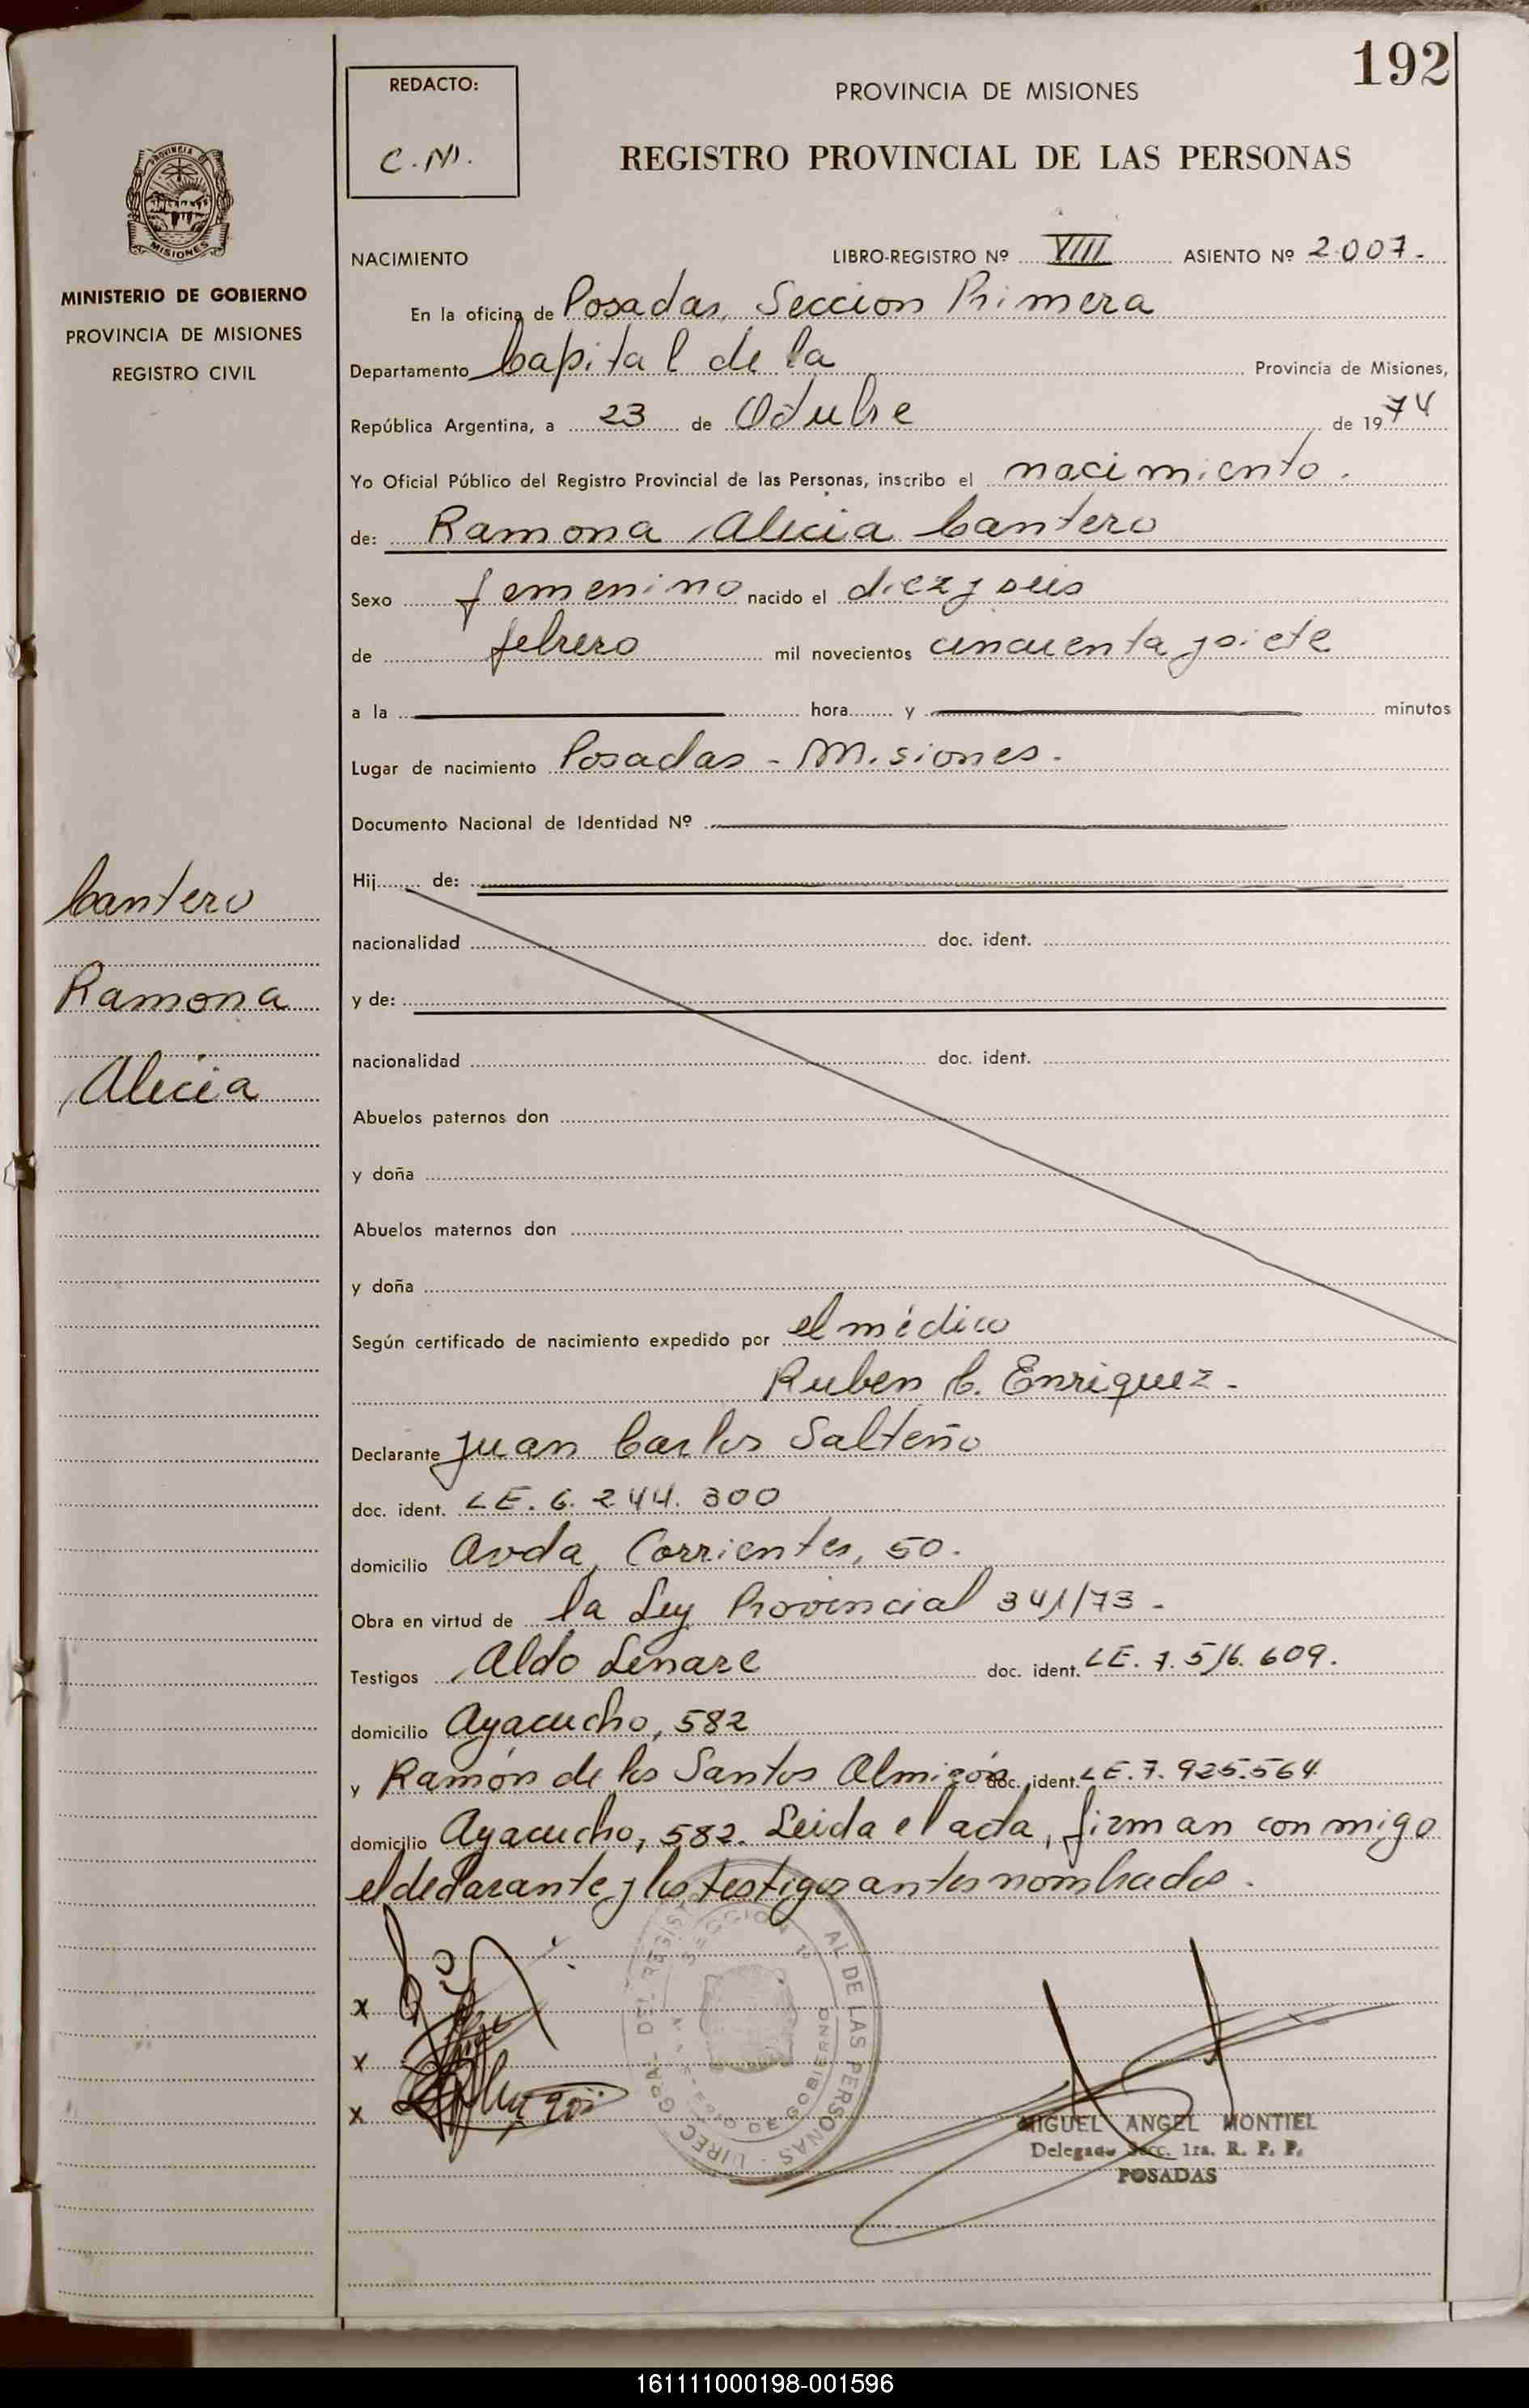 192
REDACTO:
C.M.
PROVINCIA DE MISIONES
REGISTRO PROVINCIAL DE LAS PERSONAS
PROVINCIA DE
MISIONES
MINISTERIO DE GOBIERNO
PROVINCIA DE MISIONES
REGISTRO CIVIL
NACIMIENTO LIBRO-REGISTRO Nº VIII ASIENTO Nº 2.007.
En la oficina de Posadas, Seccion Primera
Departamento Capital de la Provincia de Misiones,
República Argentina, a 23 de Octubre de 1974
Yo Oficial Público del Registro Provincial de las Personas, inscribo el nacimiento.
de: Ramona Alicia Cantero
Sexo femenino nacido el diez y seis
de febrero mil novecientos cincuenta y siete
a la hora y minutos
Lugar de nacimiento Posadas - Misiones.
Documento Nacional de Identidad Nº
Cantero
Ramona
Alicia
Hij de:
nacionalidad doc. ident.
y de:
nacionalidad doc. ident.
Abuelos paternos don
y doña
Abuelos maternos don
y doña
Según certificado de nacimiento expedido por el médico
Ruben C. Enriquez.
Declarante Juan Carlos Salteño
doc. ident. LE. 6.244.300
domicilio Avda, Corrientes, 50.
Obra en virtud de la Ley Provincial 341/73.
Testigos Aldo Lenare doc. ident. LE. 7.516.609.
domicilio Ayacucho, 582
y Ramón de los Santos Almirón doc. ident. LE. 7.925.564
domicilio Ayacucho, 582. Leida el acta, firman conmigo
el declarante y los testigos antes nombrados.
x
x
x
SECCION 1ª
AL DE LAS PERSONAS
DE GOBIERNO
MIGUEL ANGEL MONTIEL
Delegado Secc. 1ra. R. P. P.
POSADAS
161111000198-001596